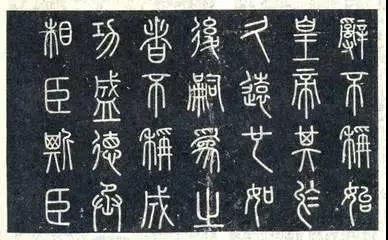 辭不稱始
皇帝其於
久遠也如
後嗣為之
者不稱成
功盛德丞
相臣斯臣